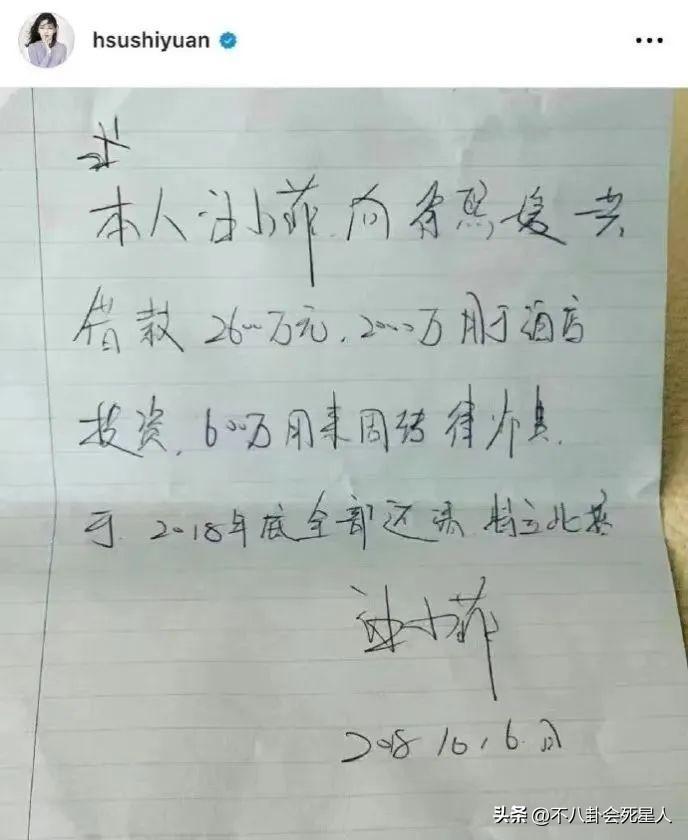 hsushiyuan
本人汪小菲.向徐熙媛共
借款2600万元,2000万用于酒店
投资,600万用来周转律师费.
于2018年底全部还清.特立此据
汪小菲
2018.10.6.日
头条 @不八卦会死星人